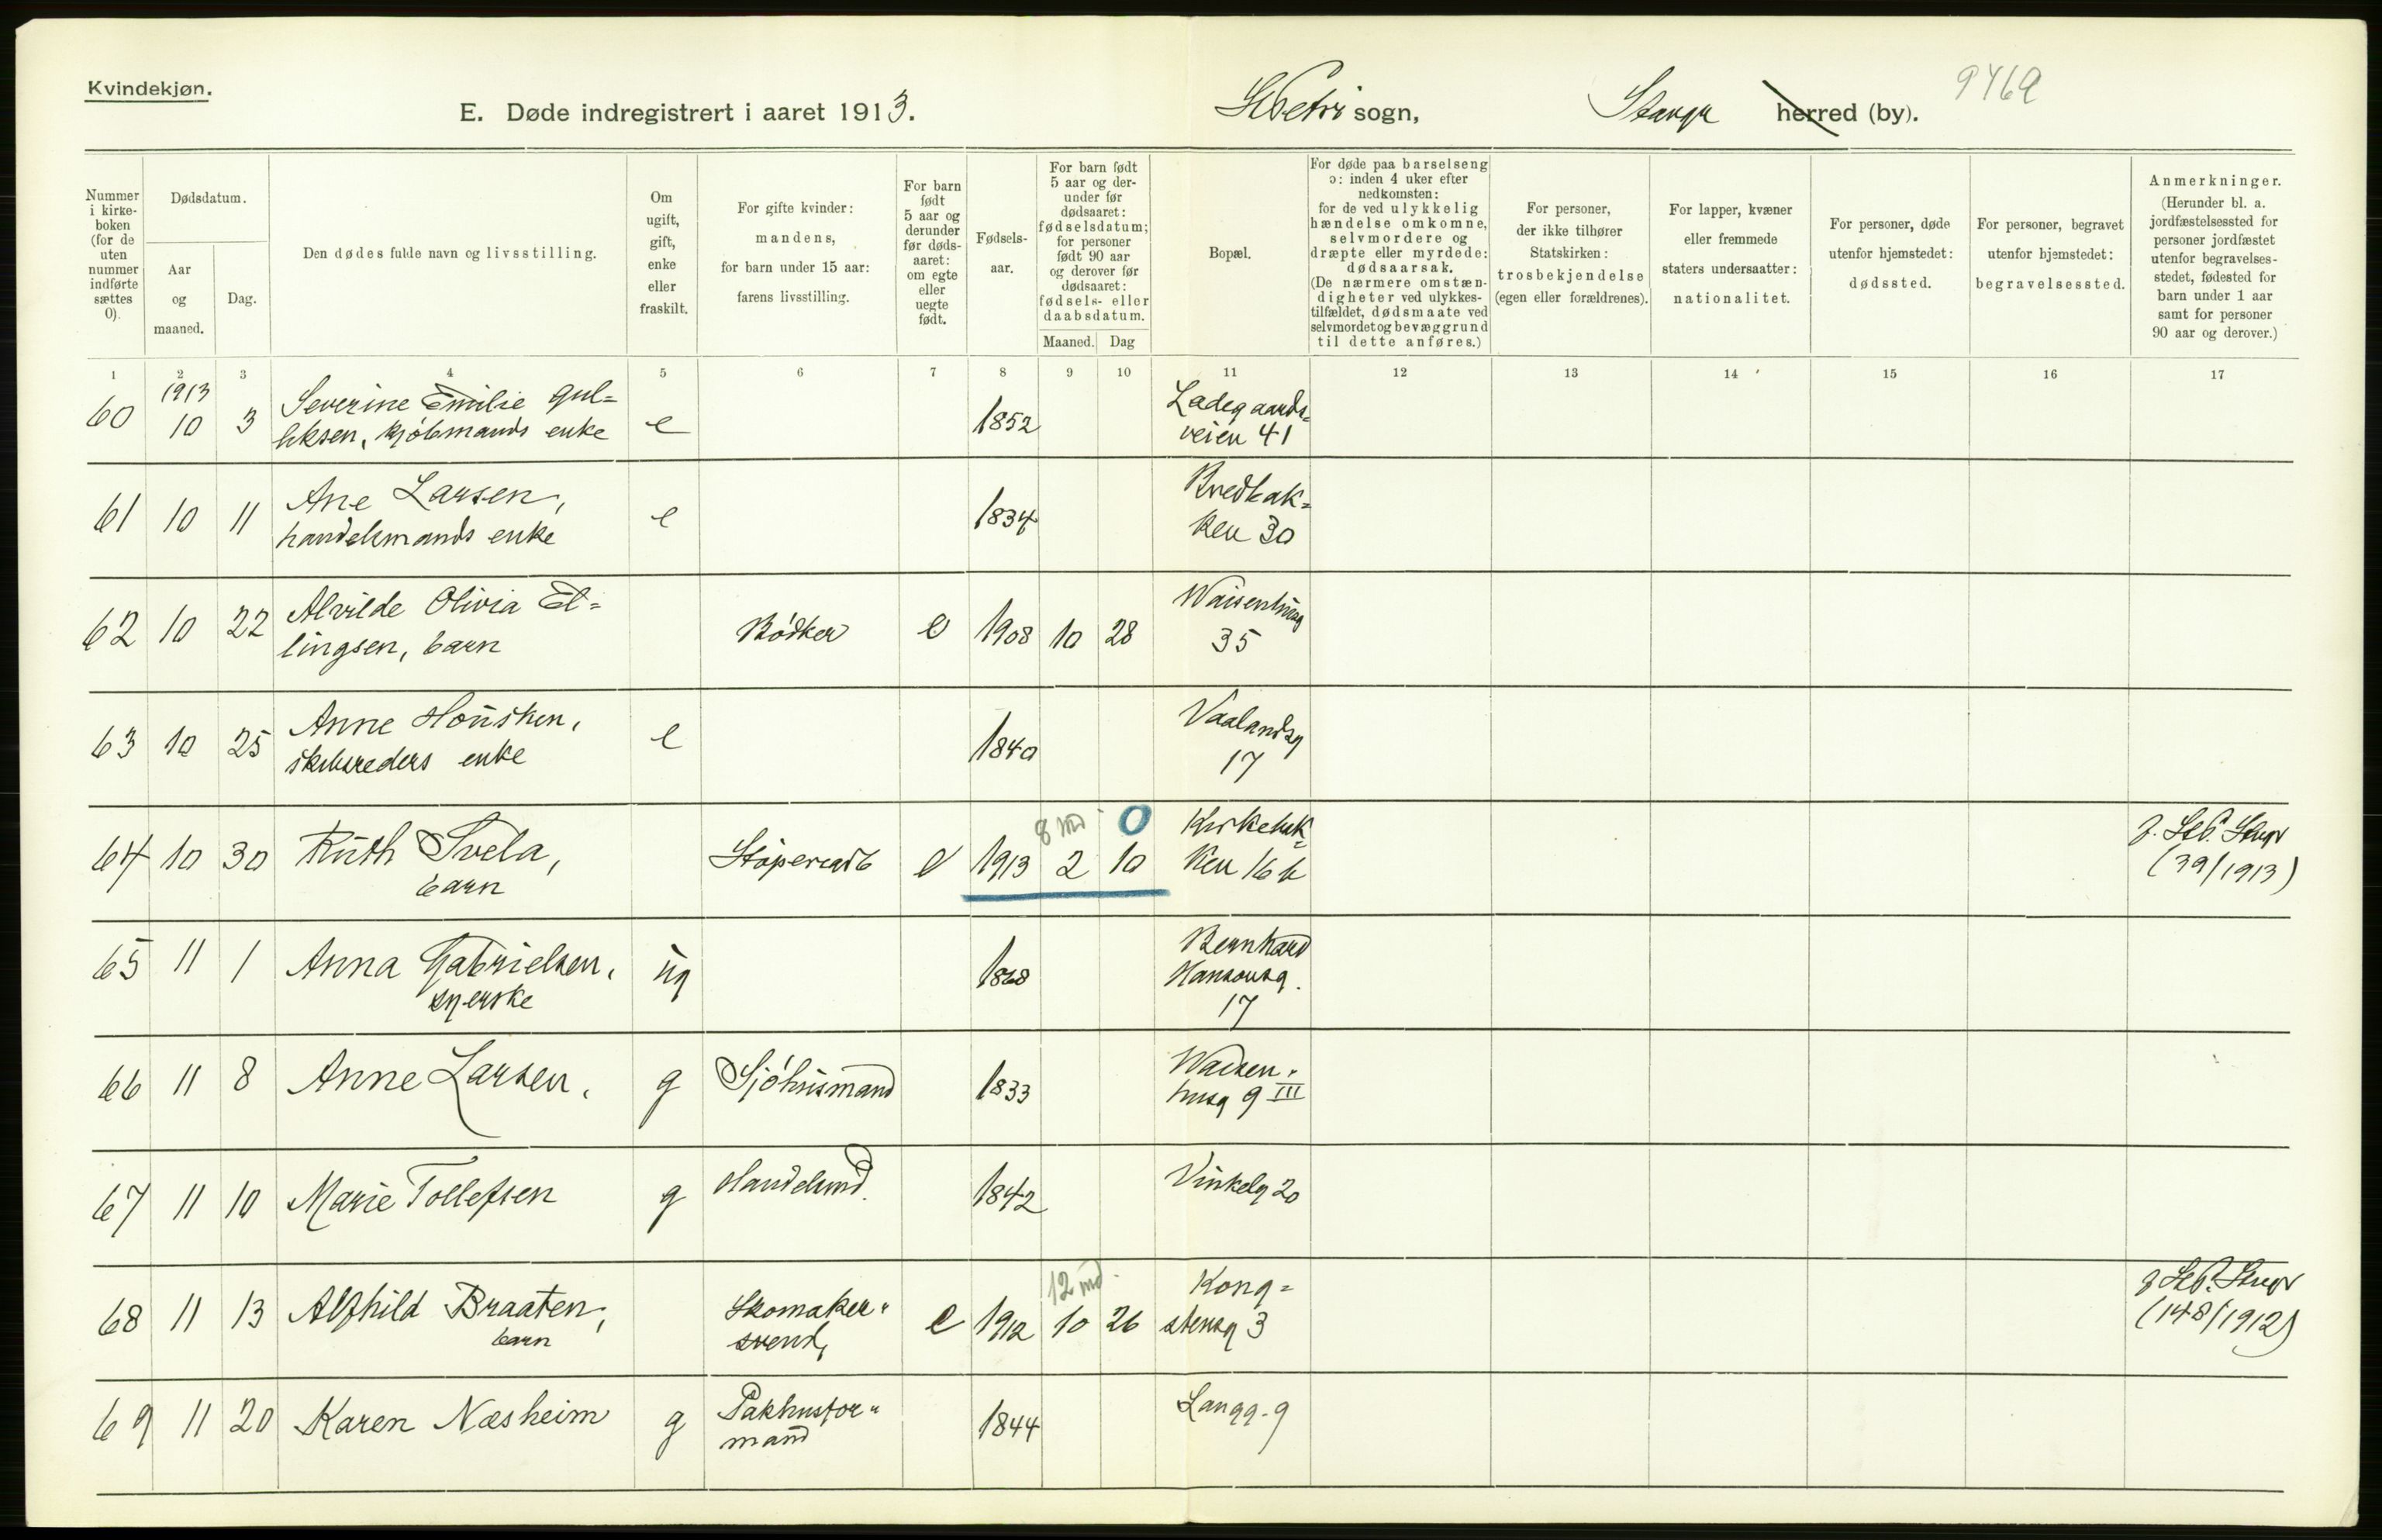 Kvindekjøn.
E. Døde indregistrert i aaret 1913.
St Petri sogn,
Stavgr herred (by).
9769
Nummer i kirke-boken (for de uten nummer indførte sættes 0).
Dødsdatum.
Aar og maaned.
Dag.
Den dødes fulde navn og livsstilling.
Om ugift, gift, enke eller fraskilt.
For gifte kvinder: mandens, for barn under 15 aar: farens livsstilling.
For barn født 5 aar og derunder før døds-aaret: om egte eller uegte født.
Fødsels-aar.
For barn født 5 aar og der-under før dødsaaret: fødselsdatum; for personer født 90 aar og derover før dødsaaret: fødsels- eller daabsdatum.
Maaned.
Dag
Bopæl.
For døde paa barselseng ɔ: inden 4 uker efter nedkomsten: for de ved ulykkelig hændelse omkomne, selvmordere og dræpte eller myrdede: dødsaarsak. (De nærmere omstæn-digheter ved ulykkes-tilfældet, dødsmaate ved selvmordet og bevæggrund til dette anføres.)
For personer, der ikke tilhører Statskirken: trosbekjendelse (egen eller forældrenes).
For lapper, kvæner eller fremmede staters undersaatter: nationalitet.
For personer, døde utenfor hjemstedet: dødssted.
For personer, begravet utenfor hjemstedet: begravelsessted.
Anmerkninger. (Herunder bl. a. jordfæstelsessted for personer jordfæstet utenfor begravelses-stedet, fødested for barn under 1 aar samt for personer 90 aar og derover.)
1 2 3 4 5 6 7 8 9 10 11 12 13 14 15 16 17
1913
60 10 3 Severine Emilie Gul= e 1852 Ladegaards=
liksen, kjøbmands enke veien 41
61 10 11 Ane Larsen, e 1834 Bredbak=
handelsmands enke ken 30
62 10 22 Alvilde Olivia El= Bødker e 1908 10 28 Waisenhusg
lingsen, barn 35
63 10 25 Anne Housken, e 1840 Vaalandsg
skibsreders enke 17
8 md 0
64 10 30 Ruth Svela, Støperiarb e 1913 2 10 Kirkebak= f. St P. Stvgr
barn ken 16 b (39/1913)
65 11 1 Anna Gabrielsen, ug 1868 Bernhard
syerske Hansonsg.
17
66 11 8 Anne Larsen, g Sjøhusmand 1833 Waisen-
husg 9 III
67 11 10 Marie Tollefsen g Handelsmd. 1842 Vinkelg 20
12 md.
68 11 13 Alfhild Braaten, Skomaker- e 1912 10 26 Kong= f St P. Stvgr
barn svend, stensg 3 (148/1912)
69 11 20 Karen Næsheim g Pakhusfor- 1844 Langg. 9
mand